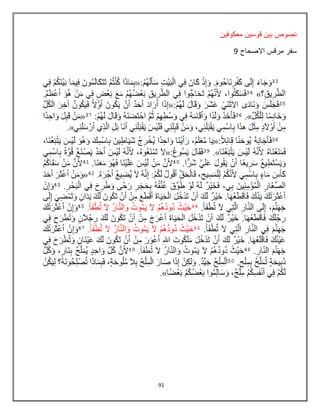 نصوص بين قوسين معكوفين
سفر مرقس الاصحاح 9
33وَجَاءَ إِلَى كَفْرِنَاحُومَ. وَإِذْ كَانَ فِي الْبَيْتِ سَأَلَهُمْ:«بِمَاذَا كُنْتُمْ تَتَكَالَمُونَ فِيمَا بَيْنَكُمْ فِي
الطَّرِيقِ؟» 34فَسَكَتُوا، لأَنَّهُمْ تَحَاجُّوا فِي الطَّرِيقِ بَعْضُهُمْ مَعَ بَعْضٍ فِي مَنْ هُوَ أَعْظَمُ.
35فَجَلَسَ وَنَادَى الاثْنَيْ عَشَرَ وَقَالَ لَهُمْ:«إِذَا أَرَادَ أَحَدٌ أَنْ يَكُونَ أَوَّلاً فَيَكُونُ آخِرَ الْكُلِّ
وَخَادِمًا لِلْكُلِّ». 36فَأَخَذَ وَلَدًا وَأَقَامَهُ فِي وَسْطِهِمْ ثُمَّ احْتَضَنَهُ وَقَالَ لَهُمْ: 37«مَنْ قَبِلَ وَاحِدًا
مِنْ أَوْلاَدٍ مِثْلَ هذَا بِاسْمِي يَقْبَلُنِي، وَمَنْ قَبِلَنِي فَلَيْسَ يَقْبَلُنِي أَنَا بَلِ الَّذِي أَرْسَلَنِي».
38فَأَجَابَهُ يُوحَنَّا قِائِلاً:«يَا مُعَلِّمُ، رَأَيْنَا وَاحِدًا يُخْرِجُ شَيَاطِينَ بِاسْمِكَ وَهُوَ لَيْسَ يَتْبَعُنَا،
فَمَنَعْنَاهُ لأَنَّهُ لَيْسَ يَتْبَعُنَا». 39فَقَالَ يَسُوعُ:«لاَ تَمْنَعُوهُ، لأَنَّهُ لَيْسَ أَحَدٌ يَصْنَعُ قُوَّةً بِاسْمِي
وَيَسْتَطِيعُ سَرِيعًا أَنْ يَقُولَ عَلَيَّ شَرًّا. 40لأَنَّ مَنْ لَيْسَ عَلَيْنَا فَهُوَ مَعَنَا. 41لأَنَّ مَنْ سَقَاكُمْ
كَأْسَ مَاءٍ بِاسْمِي لأَنَّكُمْ لِلْمَسِيحِ، فَالْحَقَّ أَقُولُ لَكُمْ: إِنَّهُ لاَ يُضِيعُ أَجْرَهُ. 42«وَمَنْ أَعْثَرَ أَحَدَ
الصِّغَارِ الْمُؤْمِنِينَ بِي، فَخَيْرٌ لَهُ لَوْ طُوِّقَ عُنُقُهُ بِحَجَرِ رَحىً وَطُرِحَ فِي الْبَحْرِ. 43وَإِنْ
أَعْثَرَتْكَ يَدُكَ فَاقْطَعْهَا. خَيْرٌ لَكَ أَنْ تَدْخُلَ الْحَيَاةَ أَقْطَعَ مِنْ أَنْ تَكُونَ لَكَ يَدَانِ وَتَمْضِيَ إِلَى
جَهَنَّمَ، إِلَى النَّارِ الَّتِي لاَ تُطْفَأُ. 44حَيْثُ دُودُهُمْ لاَ يَمُوتُ وَالنَّارُ لاَ تُطْفَأُ. 45وَإِنْ أَعْثَرَتْكَ
رِجْلُكَ فَاقْطَعْهَا. خَيْرٌ لَكَ أَنْ تَدْخُلَ الْحَيَاةَ أَعْرَجَ مِنْ أَنْ تَكُونَ لَكَ رِجْلاَنِ وَتُطْرَحَ فِي
جَهَنَّمَ فِي النَّارِ الَّتِي لاَ تُطْفَأُ. 46حَيْثُ دُودُهُمْ لاَ يَمُوتُ وَالنَّارُ لاَ تُطْفَأُ. 47وَإِنْ أَعْثَرَتْكَ
عَيْنُكَ فَاقْلَعْهَا. خَيْرٌ لَكَ أَنْ تَدْخُلَ مَلَكُوتَ اللهِ أَعْوَرَ مِنْ أَنْ تَكُونَ لَكَ عَيْنَانِ وَتُطْرَحَ فِي
جَهَنَّمِ النَّارِ. 48حَيْثُ دُودُهُمْ لاَ يَمُوتُ وَالنَّارُ لاَ تُطْفَأُ. 49لأَنَّ كُلَّ وَاحِدٍ يُمَلَّحُ بِنَارٍ، وَكُلَّ
ذَبِيحَةٍ تُمَلَّحُ بِمِلْحٍ. 50اَلْمِلْحُ جَيِّدٌ. وَلكِنْ إِذَا صَارَ الْمِلْحُ بِلاَ مُلُوحَةٍ، فَبِمَاذَا تُصْلِحُونَهُ؟ لِيَكُنْ
لَكُمْ فِي أَنْفُسِكُمْ مِلْحٌ، وَسَالِمُوا بَعْضُكُمْ بَعْضًا».
91